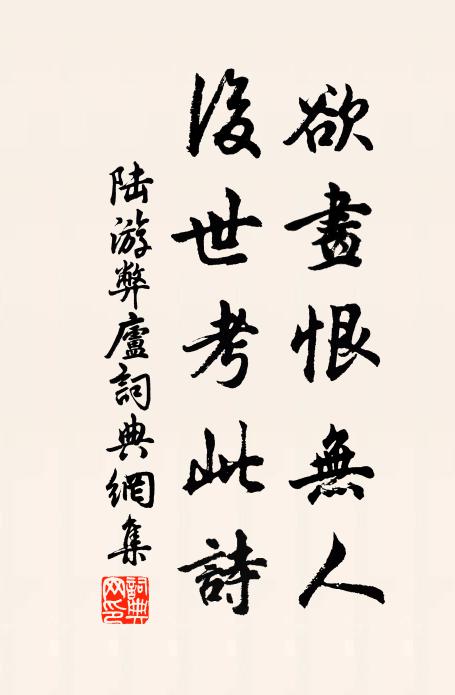 欲畫恨無人
後世考此詩
陸游弊廬詞典網集
詞典网印